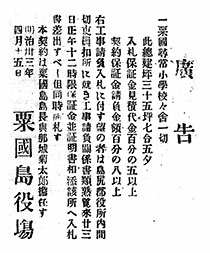 廣告
一粟國尋常小學校々舍一切
此總建坪三十五坪七合五夕
入札保証金見積代金百分の五以上
契約保証金請負金額百分の八以上
右工事請負入札に付す望の者は島尻郡役所內間
切吏員扣所に就き工事請負關係書類熟覽來廿三
日正午十二時限保証金並證明書相添該所へ入札
書差出すべし但同時開札す
本契約は粟國島島長與那城菊太郎擔任す
明治卅三年
四月十五日
粟國島役塲